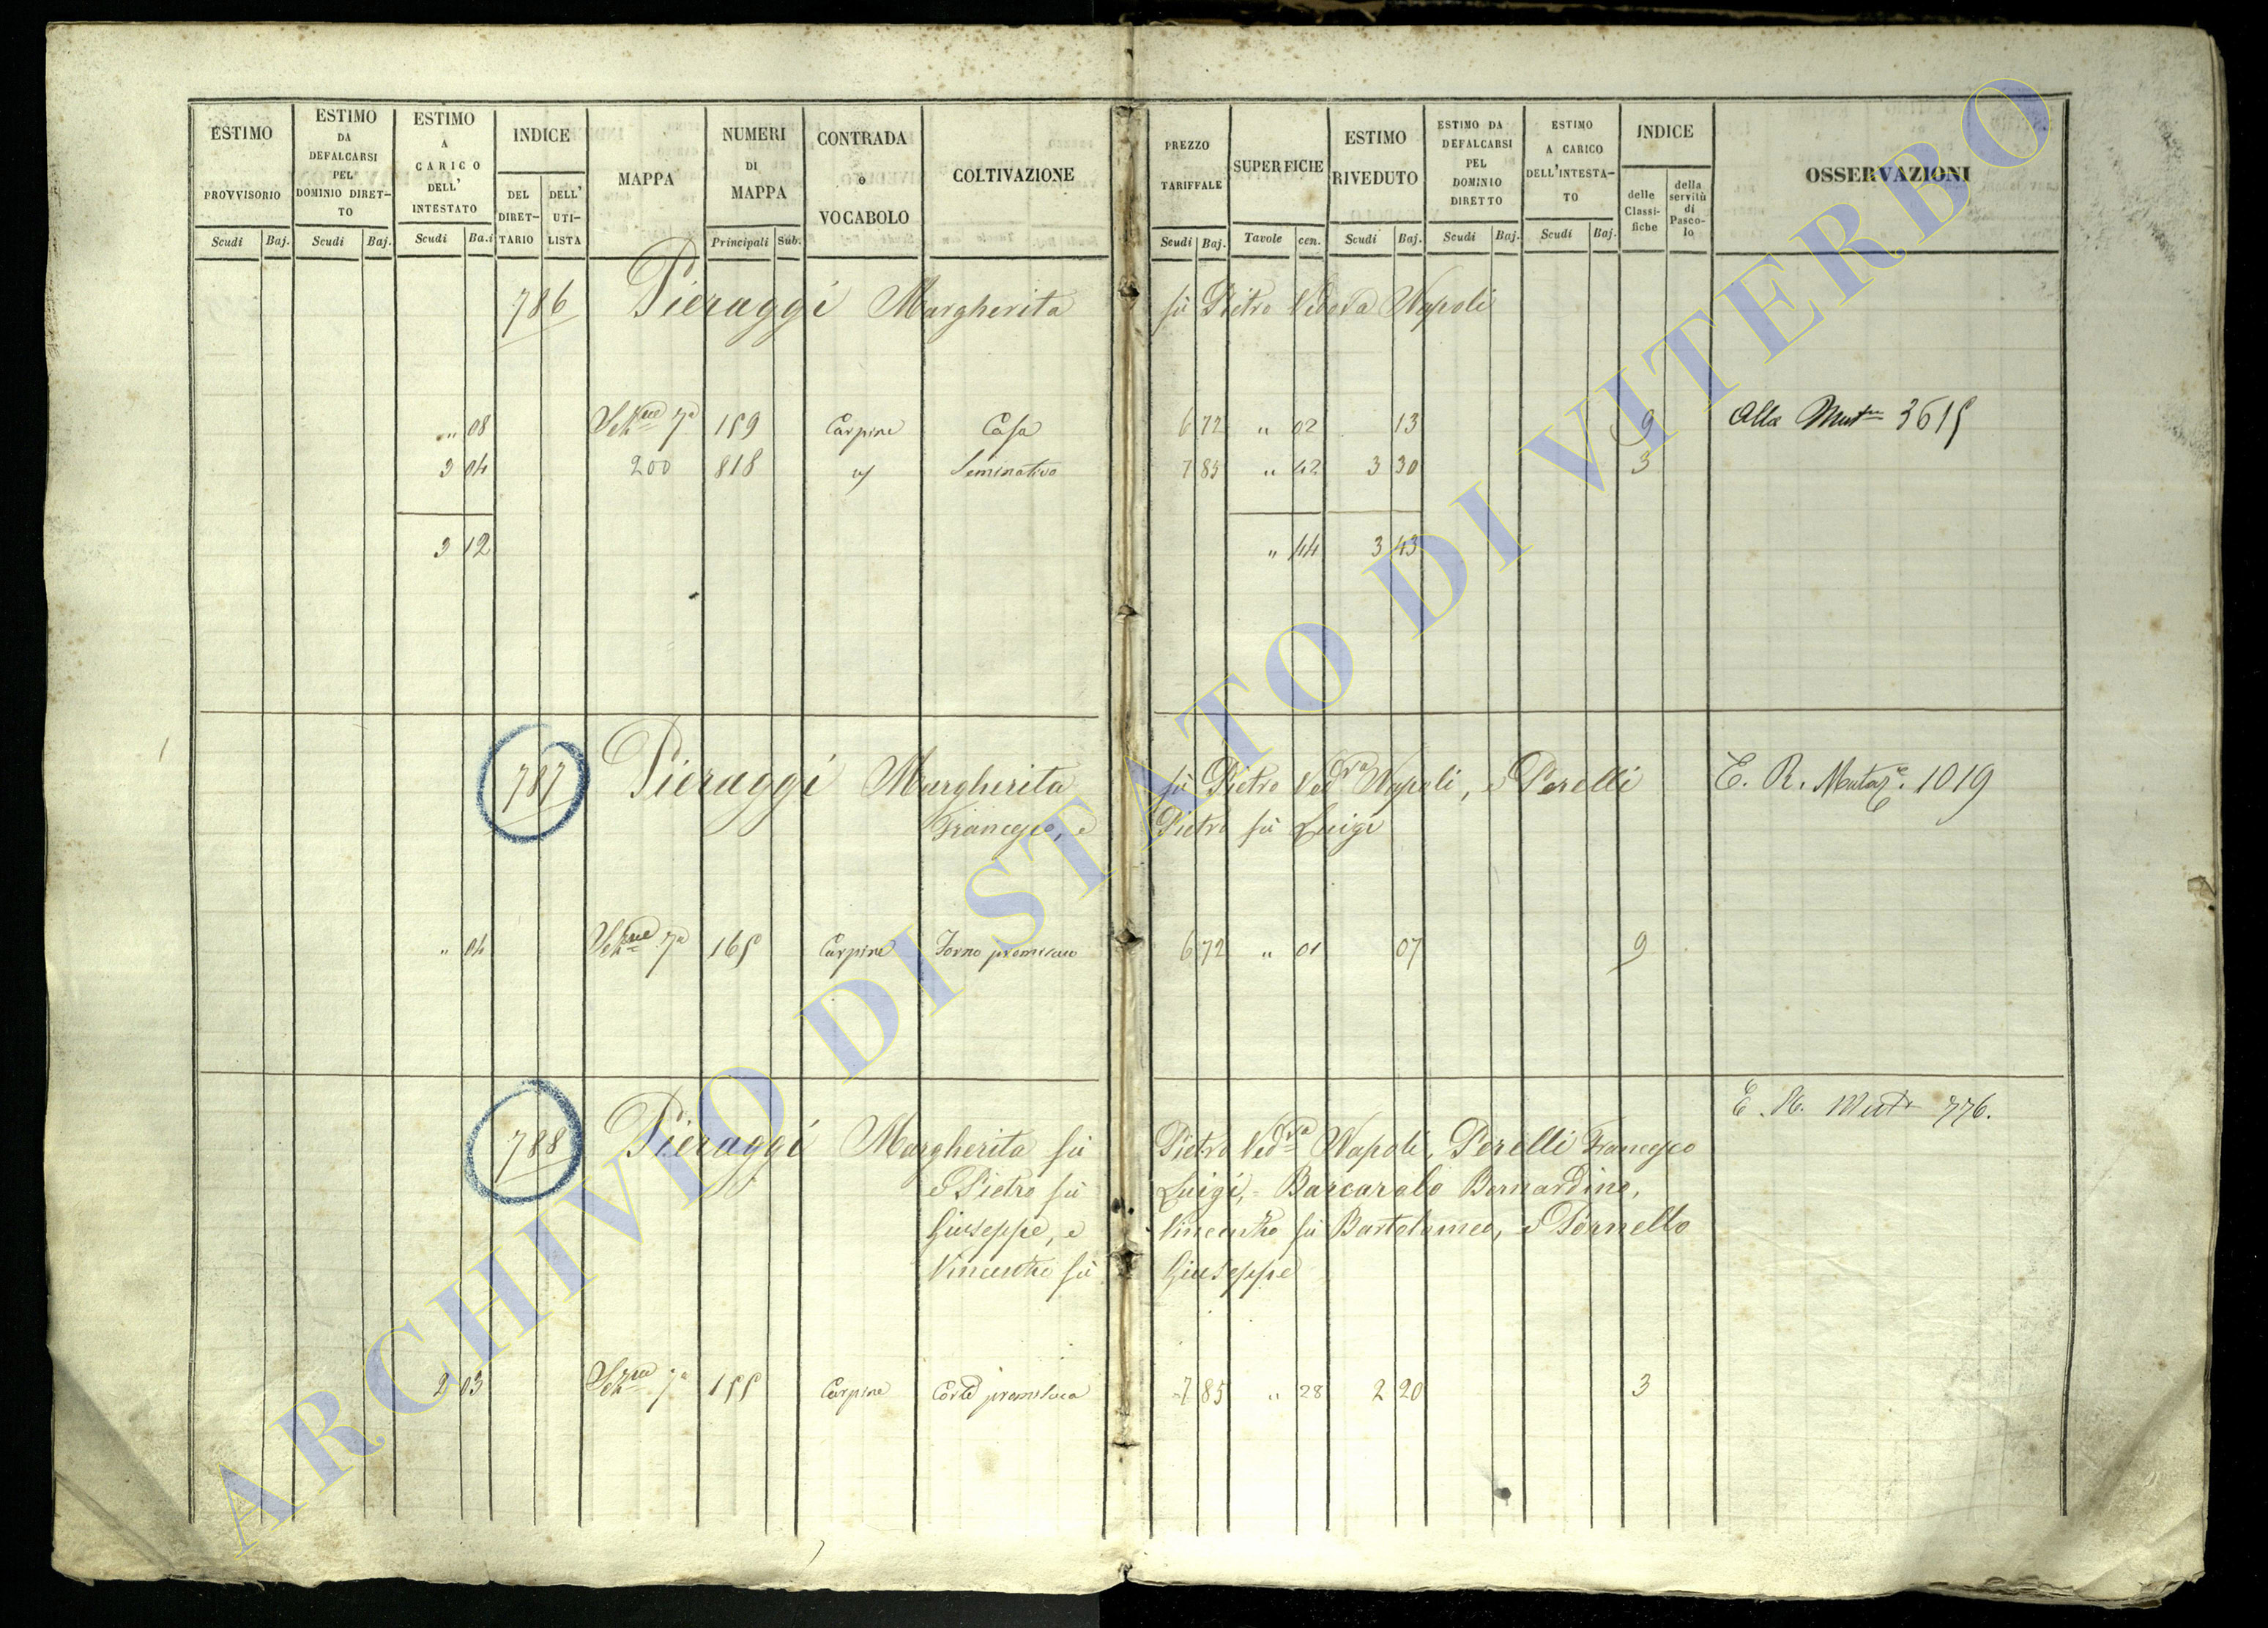 ESTIMO PROVVISORIO Scudi Baj.
ESTIMO DA DEFALCARSI PEL DOMINIO DIRETTO Scudi Baj.
ESTIMO A CARICO DELL' INTESTATO Scudi Ba.i
INDICE DEL DIRETTARIO DELL' UTILISTA
MAPPA
NUMERI DI MAPPA Principali Sub.
CONTRADA o VOCABOLO
COLTIVAZIONE
PREZZO TARIFFALE Scudi Baj.
SUPERFICIE Tavole cen.
ESTIMO RIVEDUTO Scudi Baj.
ESTIMO DA DEFALCARSI PEL DOMINIO DIRETTO Scudi Baj.
ESTIMO A CARICO DELL'INTESTATO Scudi Baj.
INDICE delle Classifiche della servitù di Pascolo
OSSERVAZIONI
786 Pieraggi Margherita fù Pietro Vedova Napoli
" 08 7a 159 Carpine Casa 6 72 " 02 13 9 Alla Mutne 3615
3 04 200 818 Seminativo 7 85 " 42 3 30 3
3 12 " 44 3 43
787 Pieraggi Margherita fù Pietro Vedva Napoli, e Perelli E. R. Mutaze. 1019
Francesco, e Pietro fù Luigi
" 04 7a 165 Carpine Forno promiscuo 6 72 " 01 07 9
E. R. Mute 776.
788 Pieraggi Margherita fù Pietro Vedva Napoli, Perelli Francesco
e Pietro fù Luigi, = Barcarolo Bernardino,
Giuseppe, e Vincenzo fù Bartolomeo, e Pornello
Vincenzo fù Giuseppe
2 03 7a 155 Carpine Corte promiscua 7 85 " 28 2 20 3
ARCHIVIO DI STATO DI VITERBO